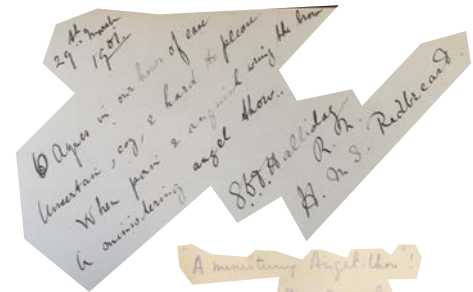 29th March
1901.
O Agnes in our hours of ease
Uncertain, coy, & hard to please
When pain & anguish wring the brow
A ministering angel thou..
S.G.T. Halliday
R.N.
H.M.S. Redbreast.
"A ministering Angel thou"!